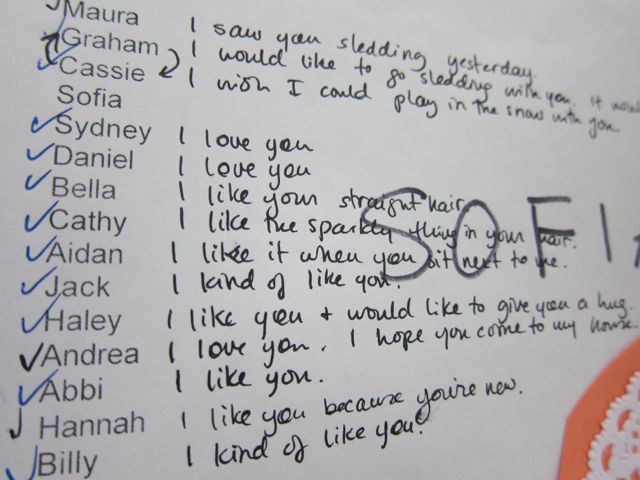 Maura I saw you sledding yesterday.
Graham I would like to go sledding with you. It would
Cassie I wish I could play in the snow with you.
Sofia
Sydney I love you
Daniel I love you
Bella I like your straight hair.
Cathy I like the sparkly thing in your hair.
Aidan I like it when you sit next to me.
Jack I kind of like you.
Haley I like you + would like to give you a hug.
Andrea I love you. I hope you come to my house.
Abbi I like you.
Hannah I like you because you're new.
Billy I kind of like you?
SOFI